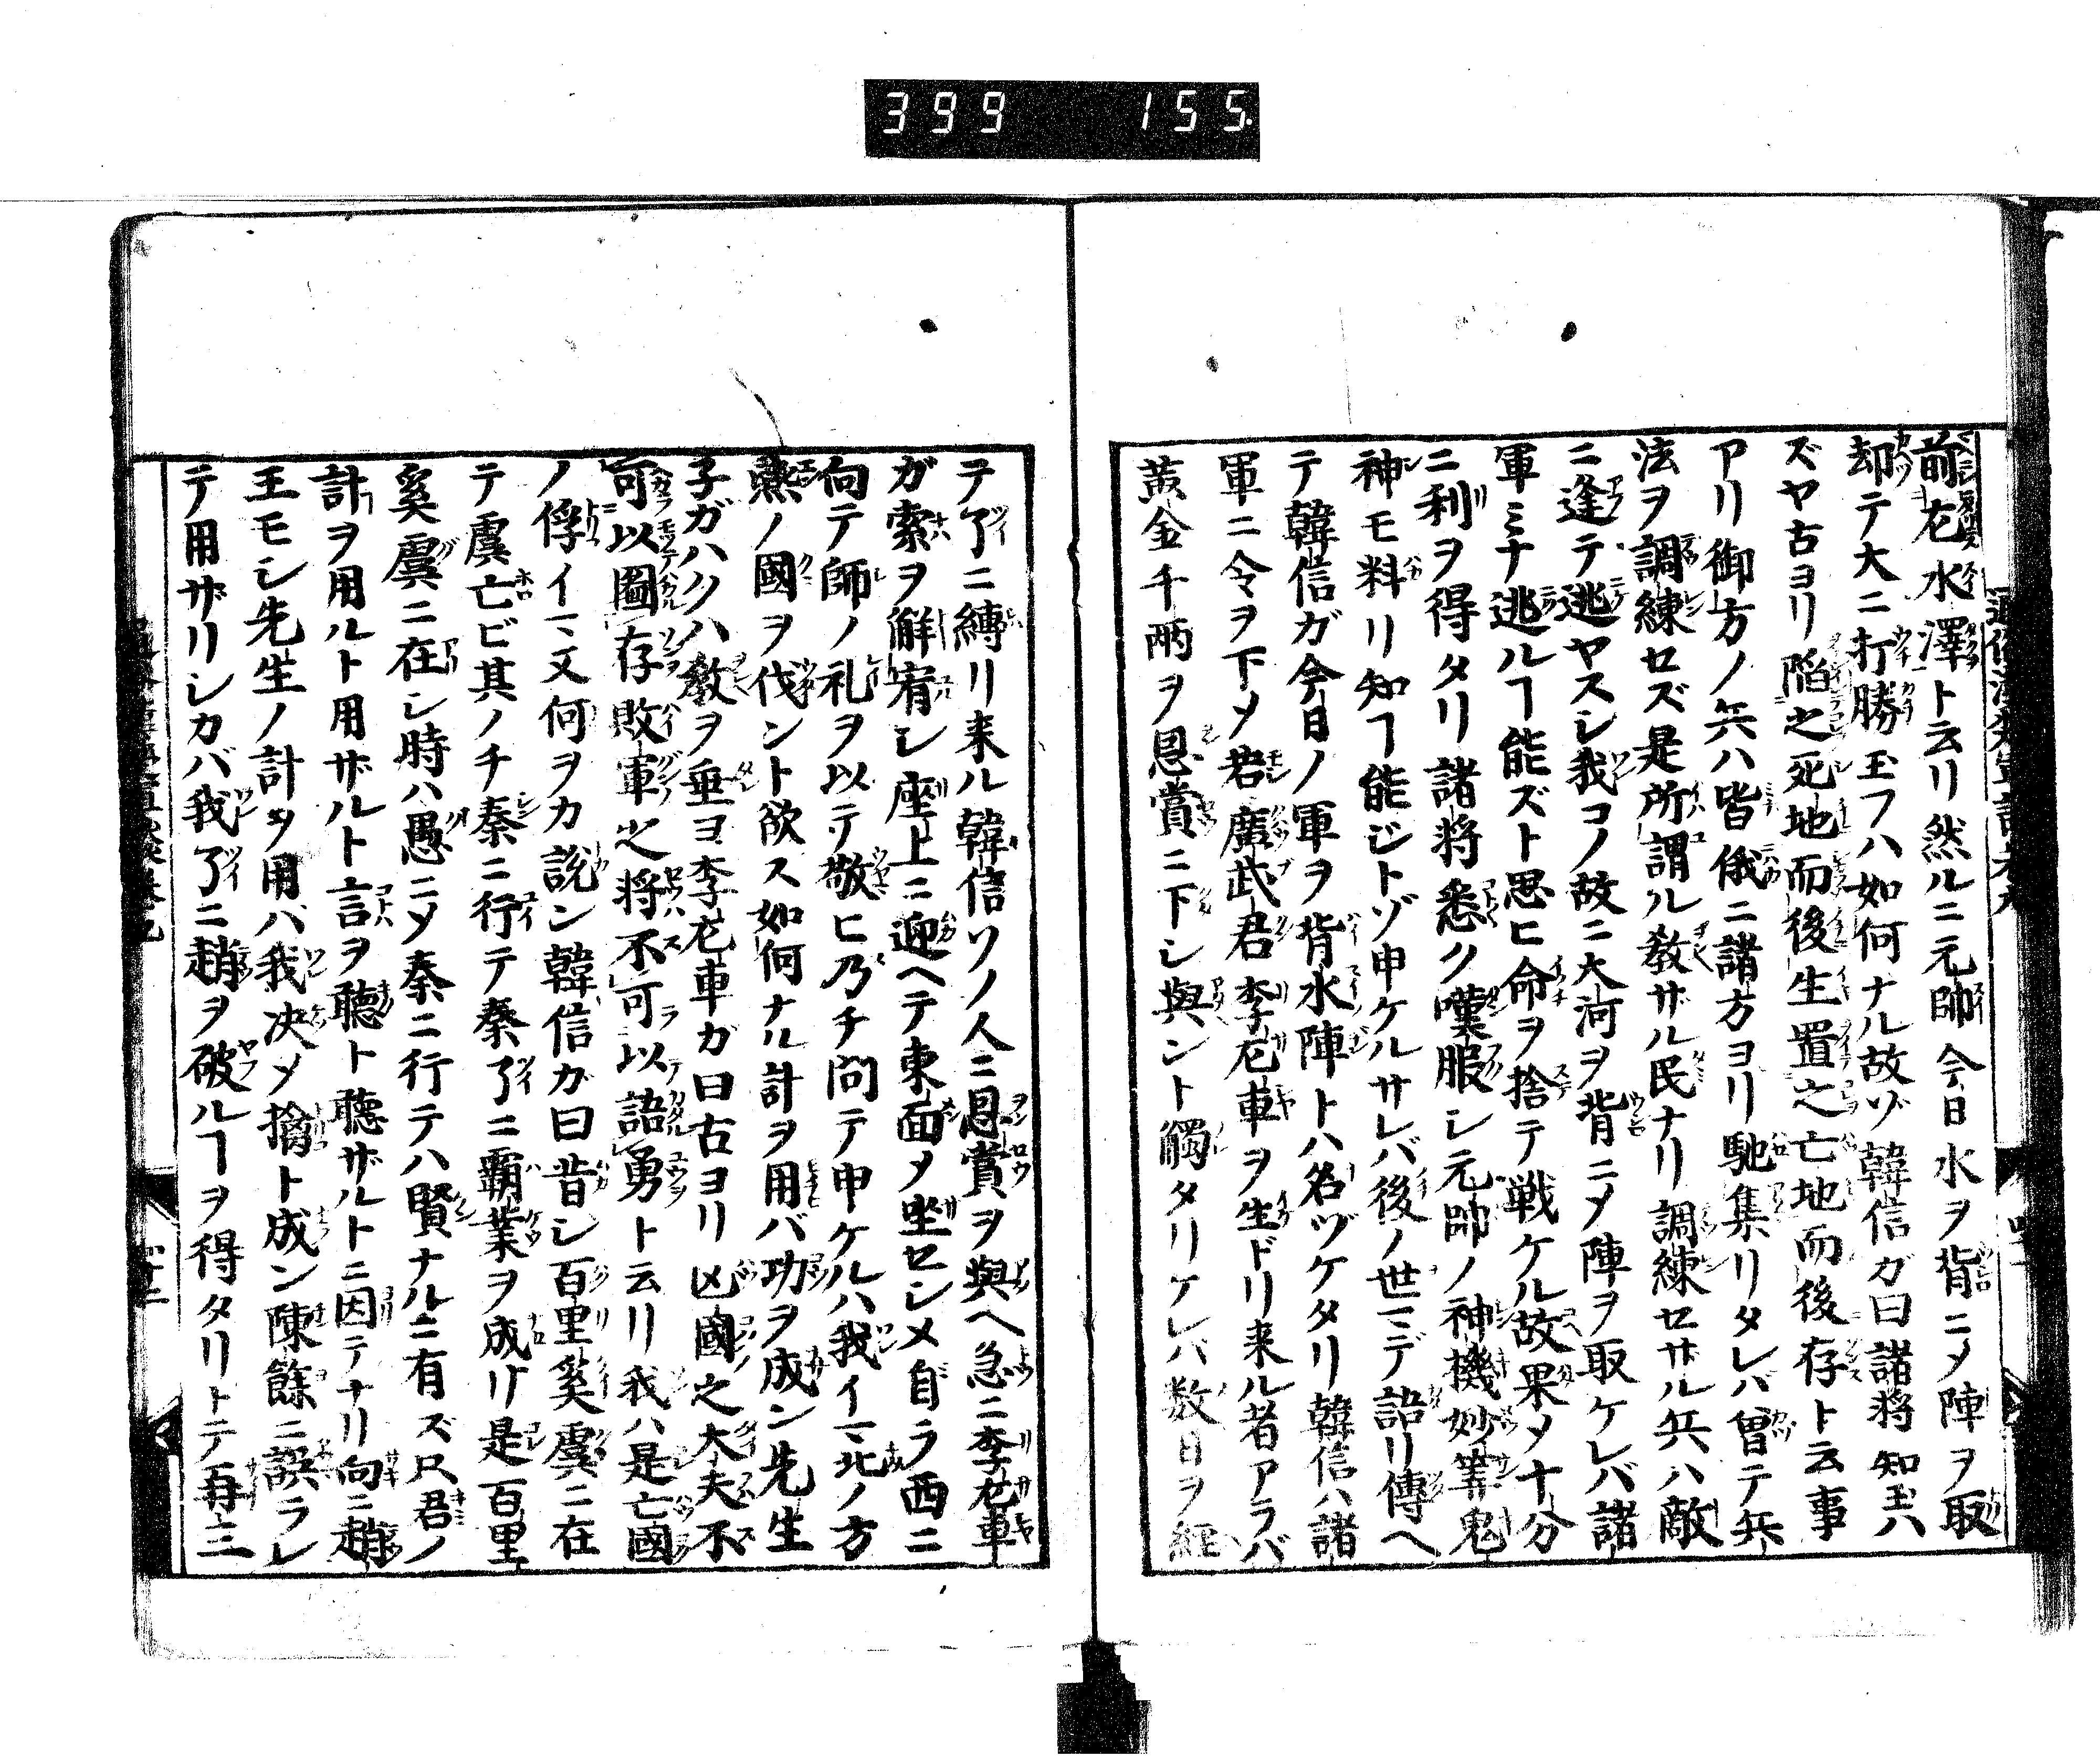 399 155.
前左水澤ト云リ然ルニ元帥今日水ヲ背ニメ陣ヲ取
却テ大ニ打勝玉フハ如何ナル故ゾ韓信ガ曰諸将知玉ハ
ズヤ古ヨリ陷之死地而後生置之亡地而後存ト云事
アリ御方ノ兵ハ皆俄ニ諸方ヨリ馳集リタレハ曽テ兵
法ヲ調練セズ是所謂ル教ザル民ナリ調練セサル兵ハ敵
ニ逢テ逃ヤスシ我コノ故ニ大河ヲ背ニメ陣ヲ取ケレバ諸
軍ミナ逃ルヿ能ズト思ヒ命ヲ捨テ戦ケル故果メ十分
ニ利ヲ得タリ諸将悉ク嘆服シ元帥ノ神機妙筭鬼
神モ料リ知ヿ能ジトゾ申ケルサレバ後ノ世マデ語リ傳ヘ
テ韓信ガ今日ノ軍ヲ背水陣トハ名ヅケタリ韓信ハ諸
軍ニ令ヲ下メ若廣武君李左車ヲ生ドリ来ル者アラバ
黄金千兩ヲ恩賞ニ下シ與ント觸タリケレバ数日ヲ經
テ了ニ縛リ来ル韓信ソノ人ニ恩賞ヲ與ヘ急ニ李左車
ガ索ヲ解宥シ座上ニ迎ヘテ東面メ坐セシメ自ラ西ニ
向テ師ノ礼ヲ以テ敬ヒ乃チ問テ申ケルハ我イマ北ノ方
燕ノ國ヲ伐ント欲ス如何ナル計ヲ用バ功ヲ成ン先生
子ガハクハ教ヲ垂ヨ李左車ガ曰古ヨリ亡國之大夫不
可以圖存敗軍之将不可以語勇ト云リ我ハ是亡國
ノ俘イマ又何ヲカ説ン韓信ガ曰昔シ百里奚虞ニ在
テ虞亡ビ其ノチ秦ニ行テ秦了ニ覇業ヲ成リ是百里
奚虞ニ在シ時ハ愚ニメ秦ニ行テハ賢ナルニ有ズ只君ノ
計ヲ用ルト用ザルト言ヲ聽ト聽ザルトニ因テナリ向ニ趙
王モシ先生ノ計ヲ用バ我决メ擒ト成ン陳餘ニ誤ラレ
テ用ザリシカバ我了ニ趙ヲ破ルヿヲ得タリトテ再三